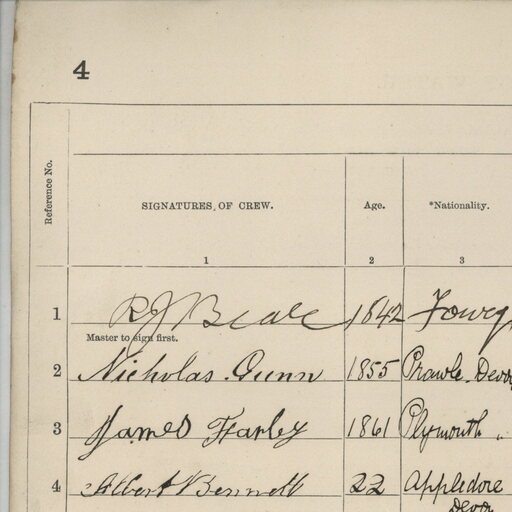 4
Reference No.
SIGNATURES OF CREW. Age. *Nationality.
1 2 3
1 R J Beale 1842 Fowey
Master to sign first.
2 Nicholas Gunn 1855 Prawle. Devon
3 James Farley 1861 Plymouth "
4 Albert Bennett 22 Appledore
Devon